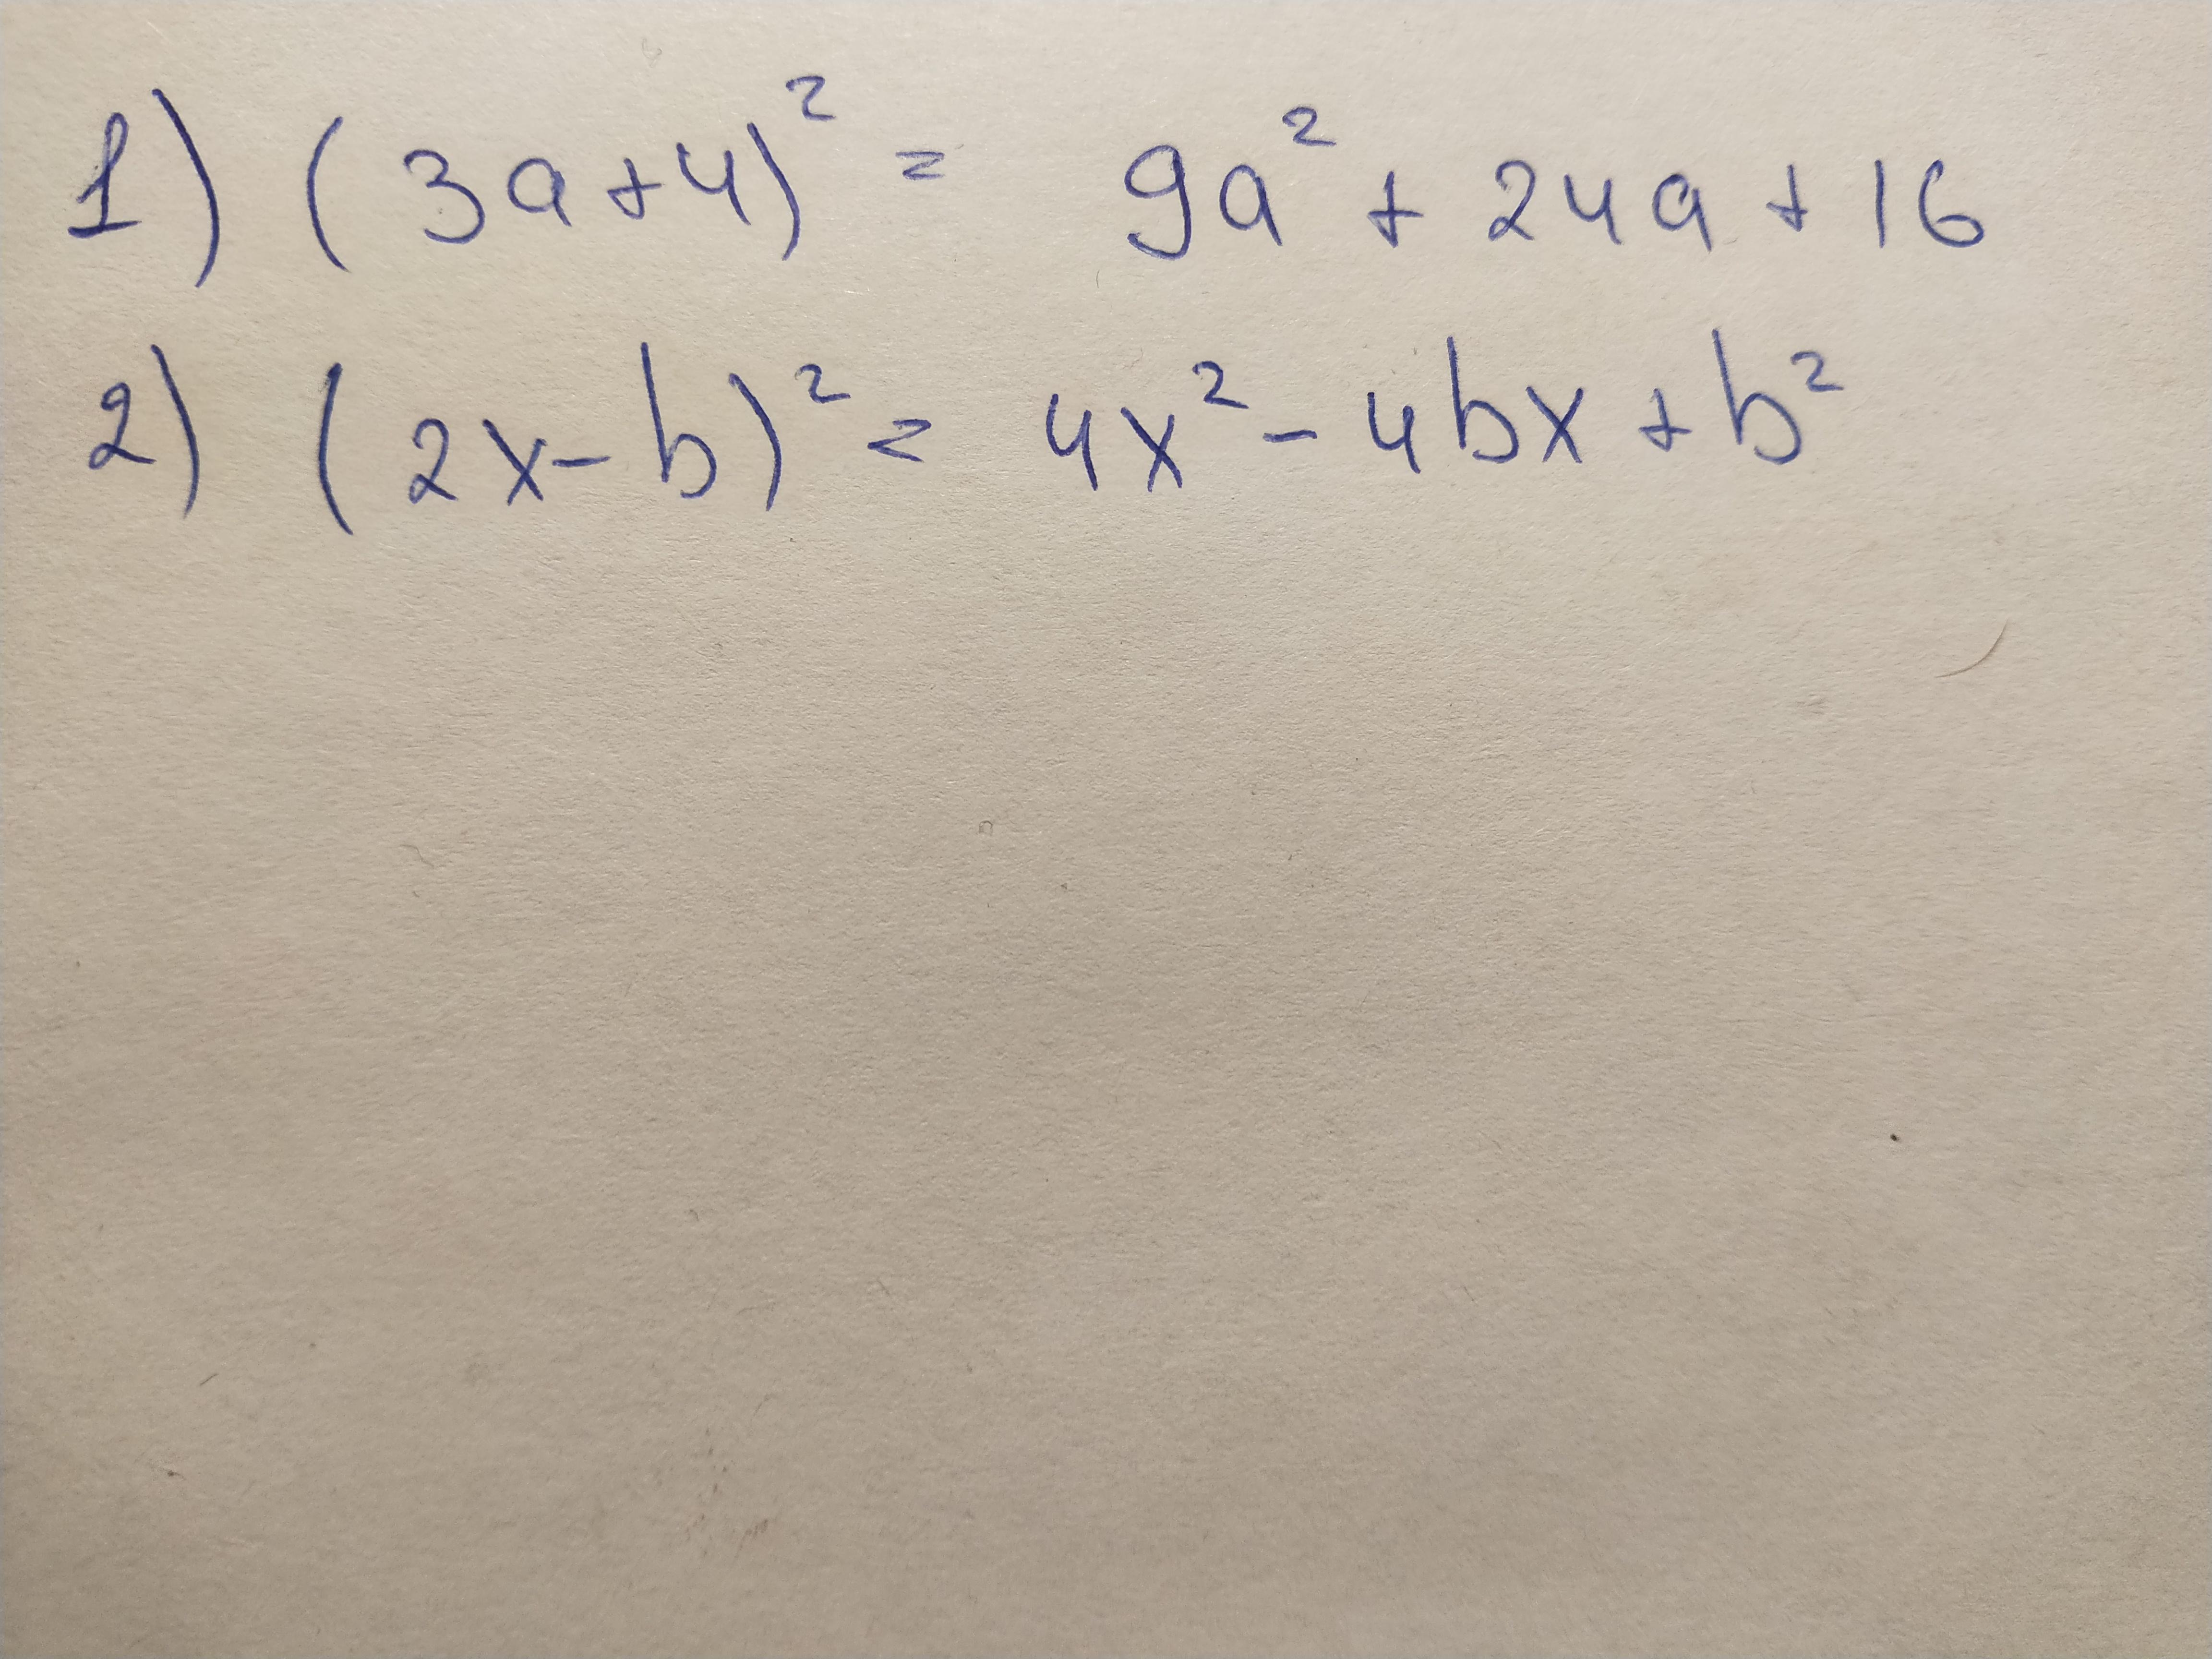 1) (3a+4)² = 9a² + 24a + 16
2) (2x-b)² = 4x² - 4bx + b²